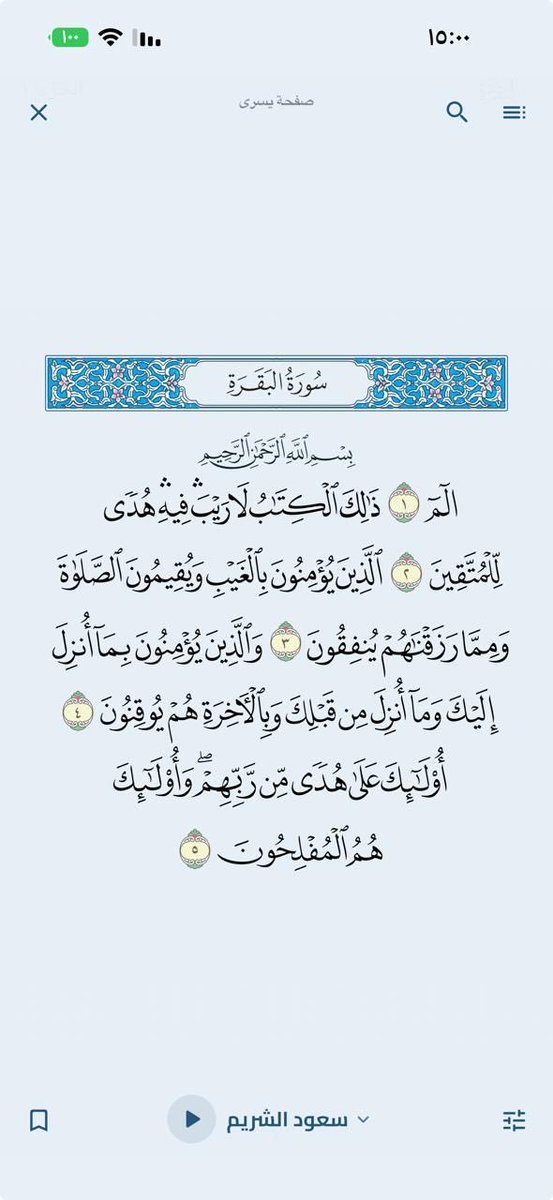 ١٥:٠٠
١٠٠
صفحة يسرى
سُورَةُ البَقَرَةِ
بِسْمِ ٱللَّهِ ٱلرَّحْمَٰنِ ٱلرَّحِيمِ
الٓمٓ ١ ذَٰلِكَ ٱلْكِتَٰبُ لَا رَيْبَۛ فِيهِۛ هُدًى
لِّلْمُتَّقِينَ ٢ ٱلَّذِينَ يُؤْمِنُونَ بِٱلْغَيْبِ وَيُقِيمُونَ ٱلصَّلَوٰةَ
وَمِمَّا رَزَقْنَٰهُمْ يُنفِقُونَ ٣ وَٱلَّذِينَ يُؤْمِنُونَ بِمَآ أُنزِلَ
إِلَيْكَ وَمَآ أُنزِلَ مِن قَبْلِكَ وَبِٱلْأَخِرَةِ هُمْ يُوقِنُونَ ٤
أُو۟لَٰٓئِكَ عَلَىٰ هُدًى مِّن رَّبِّهِمْۖ وَأُو۟لَٰٓئِكَ
هُمُ ٱلْمُفْلِحُونَ ٥
سعود الشريم